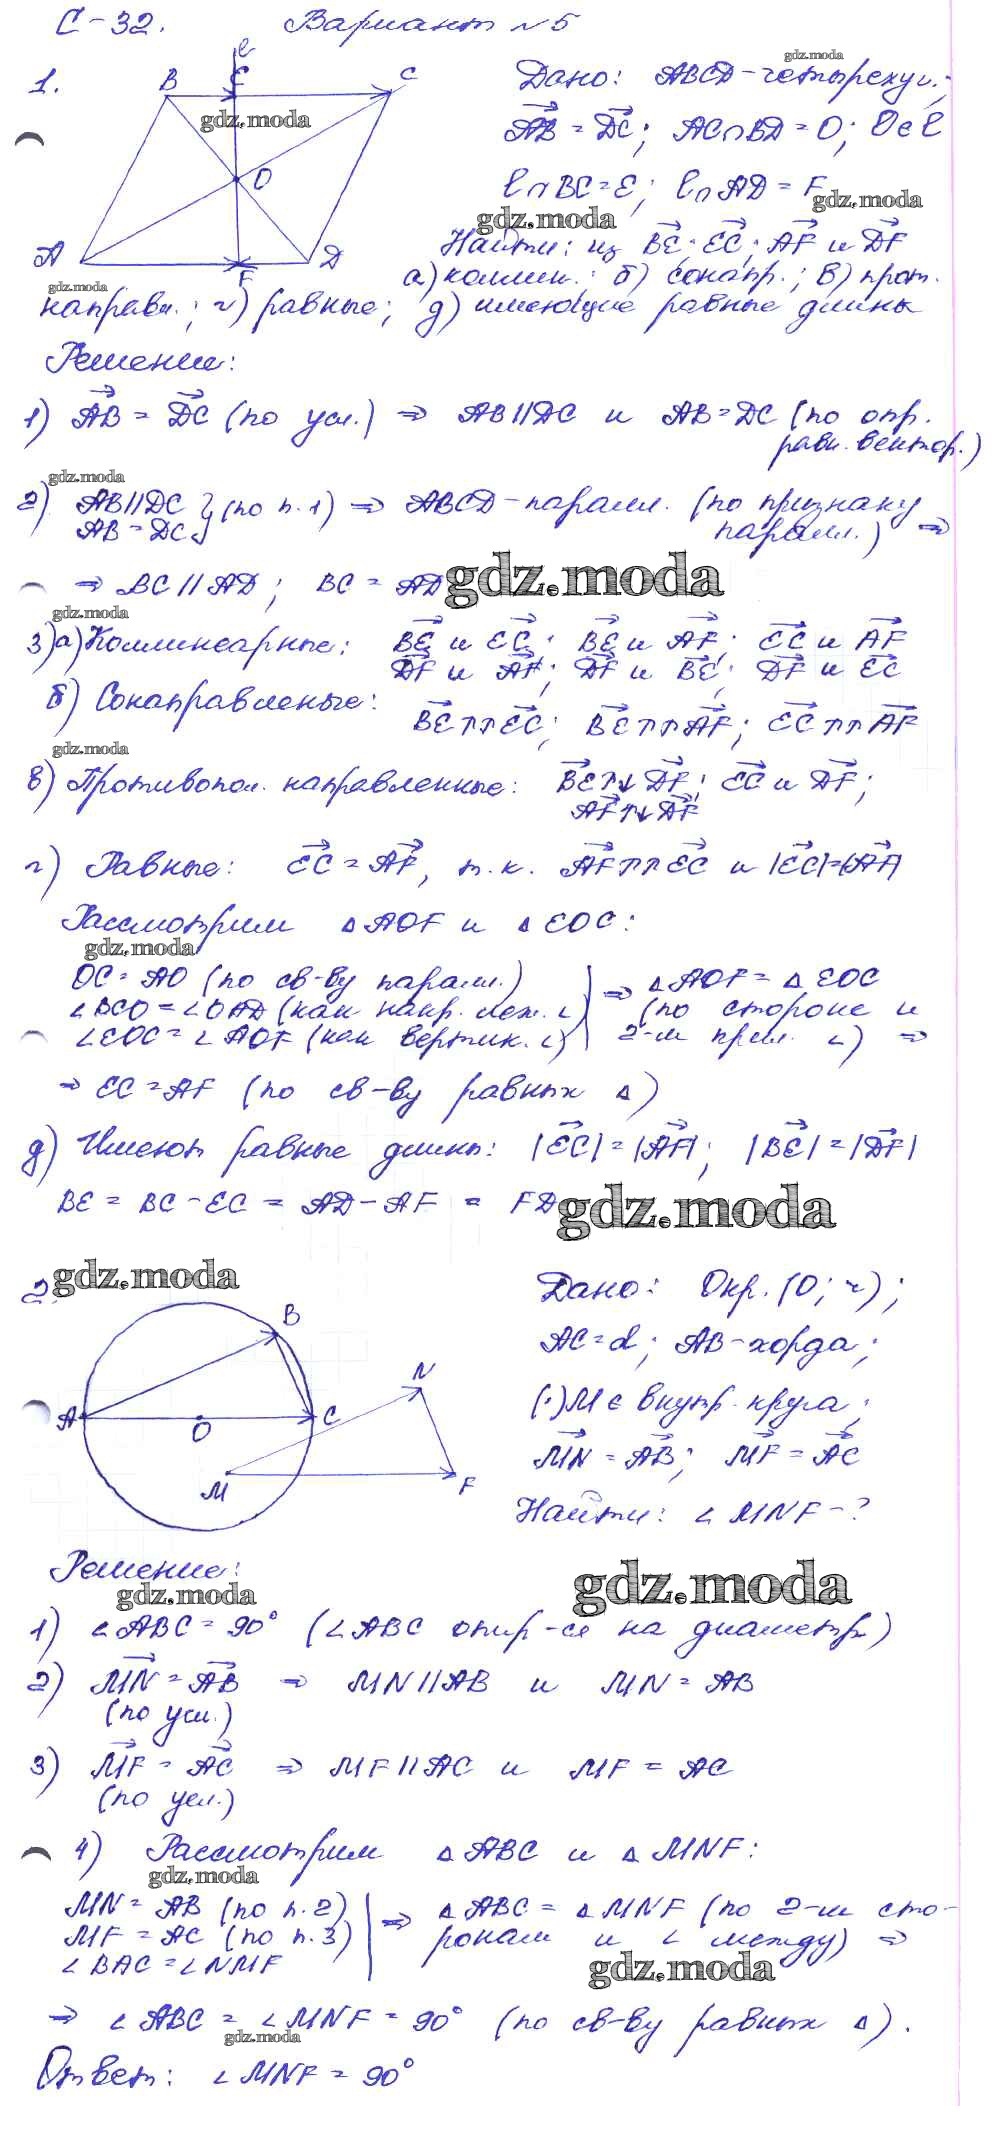 С-32. Вариант №5
gdz.moda
1.
B E C
l
gdz.moda
O
A F D
gdz.moda
Дано: ABCD-четырехуг.;
AB = DC; AC∩BD=O; O∈l
l∩BC=E; l∩AD=F
gdz.moda gdz.moda
Найти: из BE; EC; AF и DF
а) коллин.; б) сонапр.; в) прот.
направл.; г) равные; д) имеющие равные длины
Решение:
1) AB = DC (по усл.) ⇒ AB||DC и AB=DC (по опр.
равн. вектор.)
gdz.moda
2) AB||DC
AB=DC } (по п.1) ⇒ ABCD-паралл. (по признаку
паралл.) ⇒
⇒ BC||AD; BC=AD
gdz.moda
gdz.moda
3) а) Коллинеарные: BE и EC; BE и AF; EC и AF
DF и AF; DF и BE; DF и EC
б) Сонаправленые:
BE↑↑EC; BE↑↑AF; EC↑↑AF
gdz.moda
в) Противопол. направленные: BE↑↓DF; EC и DF;
AF↑↓DF
г) Равные: EC=AF, т.к. AF↑↑EC и |EC|=|AF|
Рассмотрим △AOF и △EOC:
gdz.moda
OC=AO (по св-ву паралл.)
∠BCO=∠OAD (как накр. леж. ∠)
∠EOC=∠AOF (как вертик. ∠)
⇒ △AOF=△EOC
(по стороне и
2-м прил. ∠) ⇒
⇒ EC=AF (по св-ву равных △)
д) Имеют равные длины: |EC|=|AF|; |BE|=|DF|
BE = BC-EC = AD-AF = FD
gdz.moda
gdz.moda
2.
B
N
A O C
M F
Дано: Окр.(O; r);
AC=d; AB-хорда;
(·)M∈внутр. круга;
MN=AB; MF=AC
Найти: ∠MNF-?
Решение:
gdz.moda gdz.moda
1) ∠ABC=90° (∠ABC опир-ся на диаметр)
2) MN=AB ⇒ MN||AB и MN=AB
(по усл.)
3) MF=AC ⇒ MF||AC и MF=AC
(по усл.)
4) Рассмотрим △ABC и △MNF:
gdz.moda
MN=AB (по п.2)
MF=AC (по п.3)
∠BAC=∠NMF
⇒ △ABC=△MNF (по 2-м сто-
ронам и ∠ между) ⇒
gdz.moda
⇒ ∠ABC=∠MNF=90° (по св-ву равных △).
gdz.moda
Ответ: ∠MNF=90°